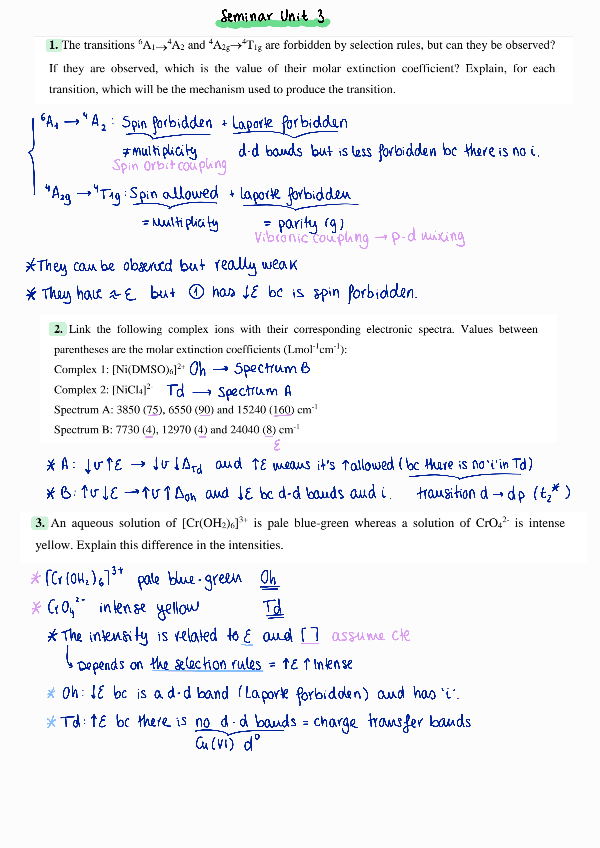 Seminar Unit 3
1. The transitions ⁶A₁→⁴A₂ and ⁴A₂g→⁴T₁g are forbidden by selection rules, but can they be observed?
If they are observed, which is the value of their molar extinction coefficient? Explain, for each
transition, which will be the mechanism used to produce the transition.
⁶A₁ → ⁴A₂ : Spin forbidden + Laporte forbidden
≠ multiplicity d-d bands but is less forbidden bc there is no i.
Spin orbit coupling
⁴A₂g → ⁴T₁g : Spin allowed + laporte forbidden
= Multiplicity = parity (g)
Vibronic coupling → p-d mixing
*They can be observed but really weak
* They have ≈ ε but ① has ↓ε bc is spin forbidden.
2. Link the following complex ions with their corresponding electronic spectra. Values between
parentheses are the molar extinction coefficients (Lmol⁻¹cm⁻¹):
Complex 1: [Ni(DMSO)₆]²⁺ Oh → Spectrum B
Complex 2: [NiCl₄]² Td → Spectrum A
Spectrum A: 3850 (75), 6550 (90) and 15240 (160) cm⁻¹
Spectrum B: 7730 (4), 12970 (4) and 24040 (8) cm⁻¹
ε
* A: ↓υ ↑ε → ↓υ ↓ΔTd and ↑ε means it's ↑allowed (bc there is no 'i' in Td)
* B: ↑υ ↓ε → ↑υ ↑Δoh and ↓ε bc d-d bands and i. transition d → dp (t₂*)
3. An aqueous solution of [Cr(OH₂)₆]³⁺ is pale blue-green whereas a solution of CrO₄²⁻ is intense
yellow. Explain this difference in the intensities.
* [Cr(OH₂)₆]³⁺ pale blue-green Oh
* CrO₄²⁻ intense yellow Td
* The intensity is related to ε and [ ] assume cte
↳ Depends on the selection rules = ↑ε ↑Intense
* Oh: ↓ε bc is a d-d band (Laporte forbidden) and has 'i'.
* Td: ↑ε bc there is no d-d bands = charge transfer bands
Cu(VI) d⁰